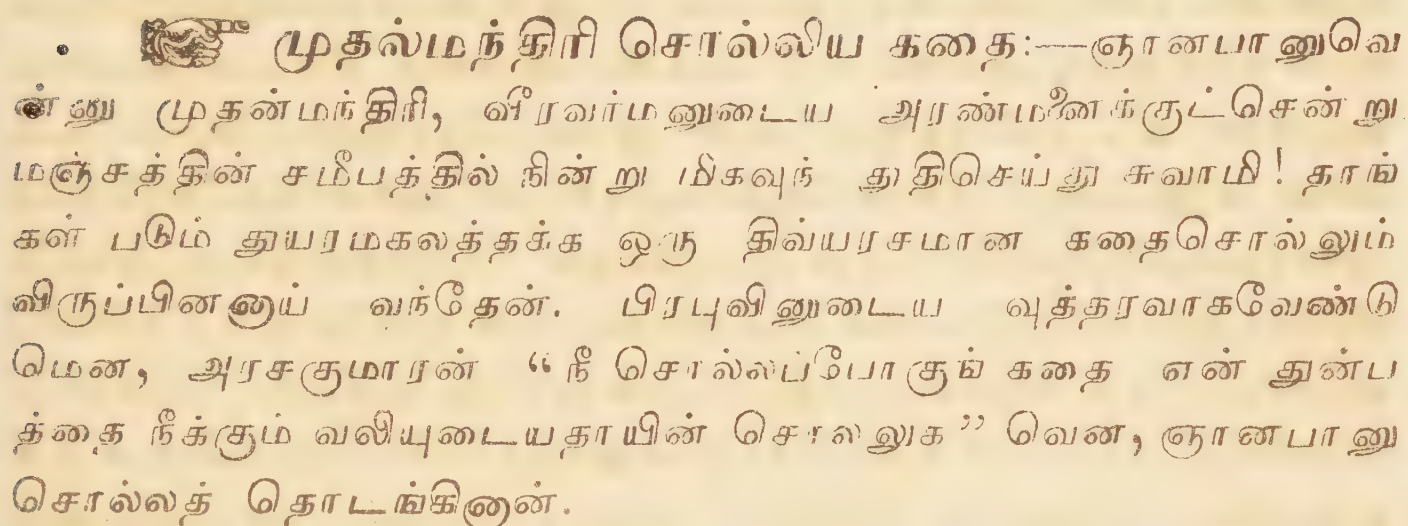 ☞ முதல்மந்திரி சொல்லிய கதை:—ஞானபானுவெ
ன்னு முதன்மந்திரி, வீரவர்மனுடைய அரண்மனைக்குட்சென்று
மஞ்சத்தின் சமீபத்தில் நின்று மிகவுந் துதிசெய்து சுவாமி! தாங்
கள் படும் துயரமகலத்தக்க ஒரு திவ்யரசமான கதைசொல்லும்
விருப்பினனாய் வந்தேன். பிரபுவினுடைய வுத்தரவாகவேண்டு
மென, அரசகுமாரன் “நீ சொல்லப்போகுங் கதை என் துன்ப
த்தை நீக்கும் வலியுடையதாயின் சொல்லுக” வென, ஞானபானு
சொல்லத் தொடங்கினான்.